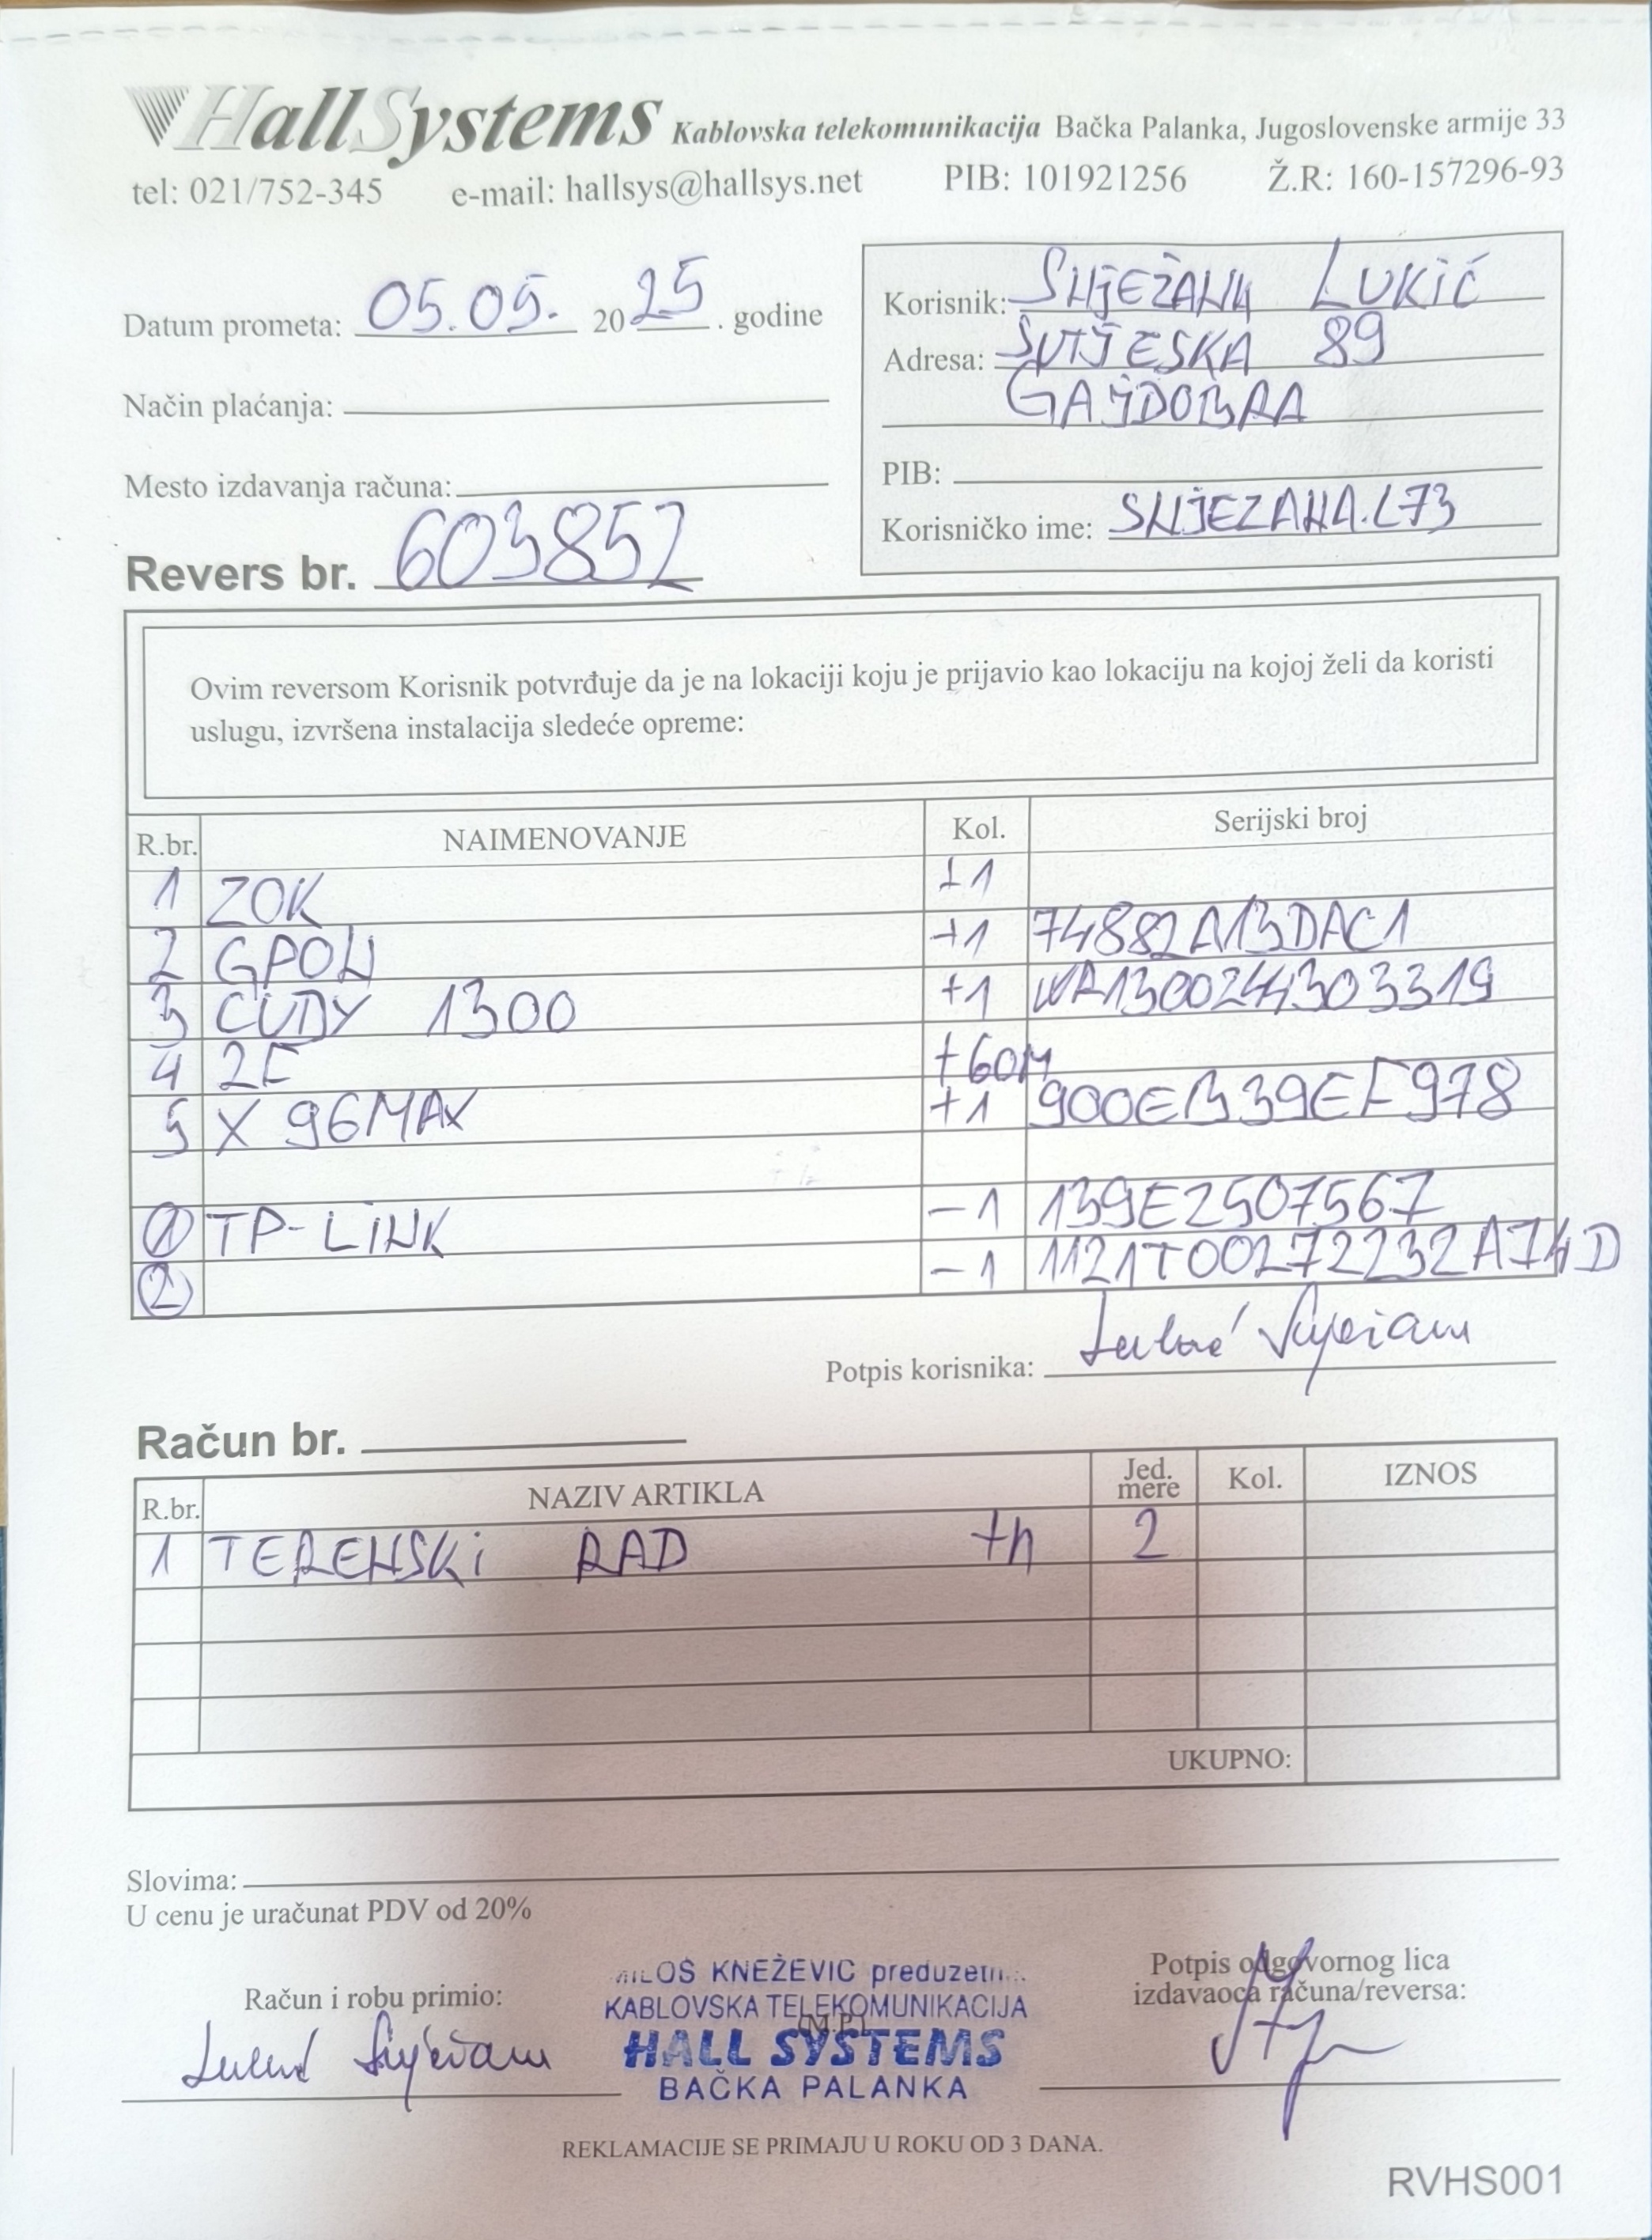 HallSystems Kablovska telekomunikacija Bačka Palanka, Jugoslovenske armije 33
tel: 021/752-345 e-mail: hallsys@hallsys.net PIB: 101921256 Ž.R: 160-157296-93
Datum prometa: 05.05. 2025. godine
Način plaćanja:
Mesto izdavanja računa:
Revers br. 603852
Korisnik: SNJEŽANA LUKIĆ
Adresa: SUTJESKA 89
GAJDOBRA
PIB:
Korisničko ime: SNJEZANA.L73
Ovim reversom Korisnik potvrđuje da je na lokaciji koju je prijavio kao lokaciju na kojoj želi da koristi
uslugu, izvršena instalacija sledeće opreme:
R.br. NAIMENOVANJE Kol. Serijski broj
1 ZOK +1
2 GPON +1 74882A13DAC1
3 CUDY 1300 +1 WR1300244303319
4 2F +60M
5 X96MAX +1 900EB39EF978
1 TP-LINK -1 139E2507567
2 -1 1121T00272232A74D
Potpis korisnika: Lukić Snježana
Račun br.
R.br. NAZIV ARTIKLA Jed. mere Kol. IZNOS
1 TERENSKI RAD th 2
UKUPNO:
Slovima:
U cenu je uračunat PDV od 20%
Račun i robu primio:
Lukić Snježana
MILOŠ KNEŽEVIĆ preduzetn...
KABLOVSKA TELEKOMUNIKACIJA
(M.P.)
HALL SYSTEMS
BAČKA PALANKA
Potpis odgovornog lica
izdavaoca računa/reversa:
REKLAMACIJE SE PRIMAJU U ROKU OD 3 DANA.
RVHS001